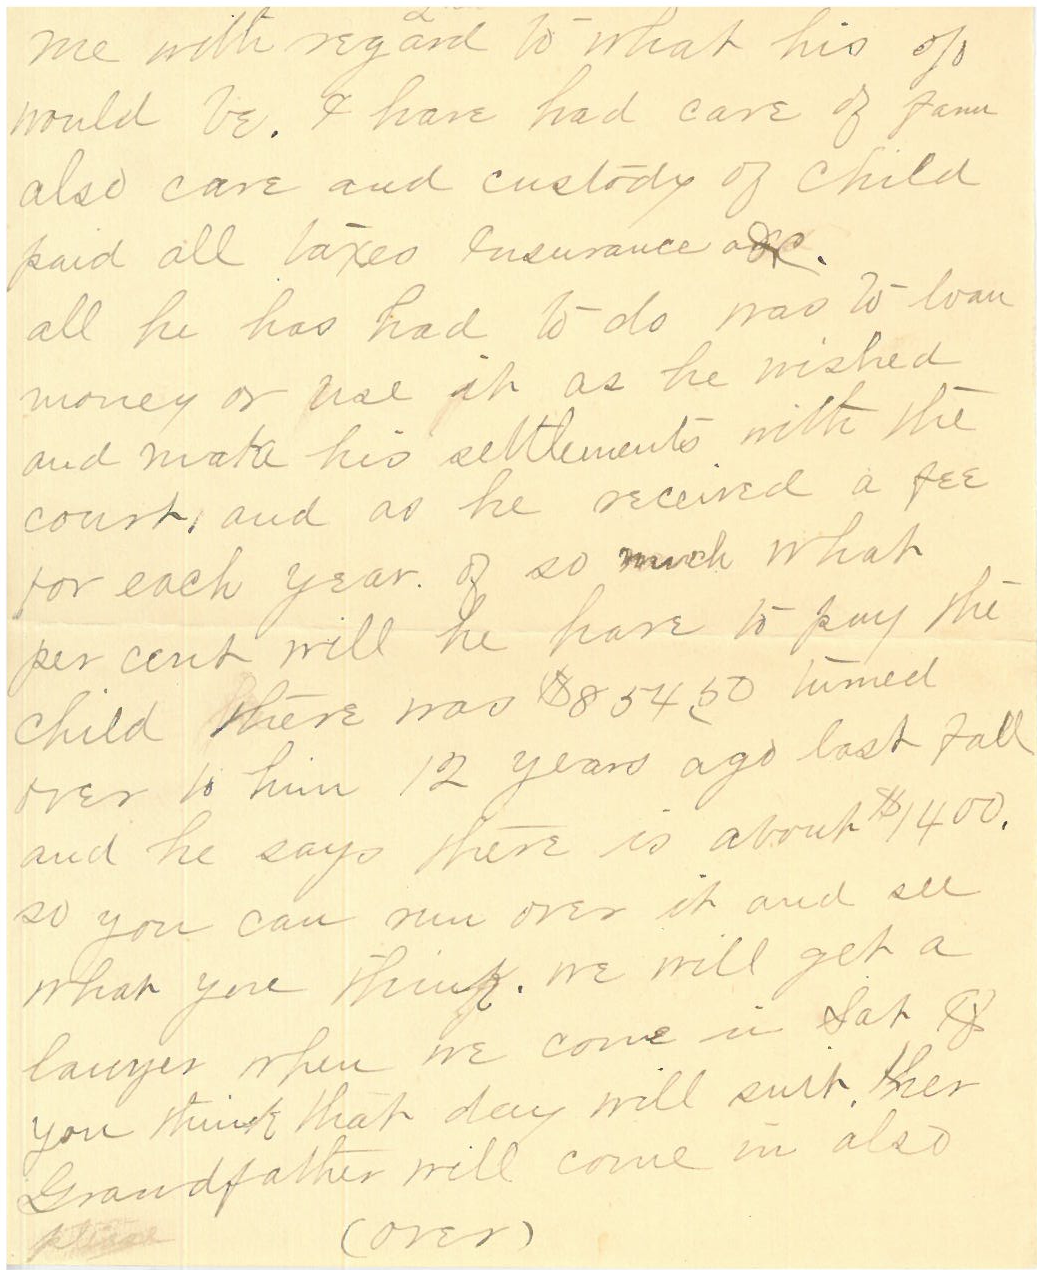 me with regard to what his op
would be. I have had care of farm
also care and custody of child
paid all taxes Insurance &c.
all he has had to do was to loan
money or use it as he wished
and make his settlements with the
court, and as he received a fee
for each year. of so much what
per cent will he have to pay the
child there was $854 50 turned
over to him 12 years ago last fall
and he says there is about $1400.
so you can run over it and see
what you think. we will get a
lawyer when we come in Sat if
you think that day will suit. Her
Grandfather will come in also
(over)